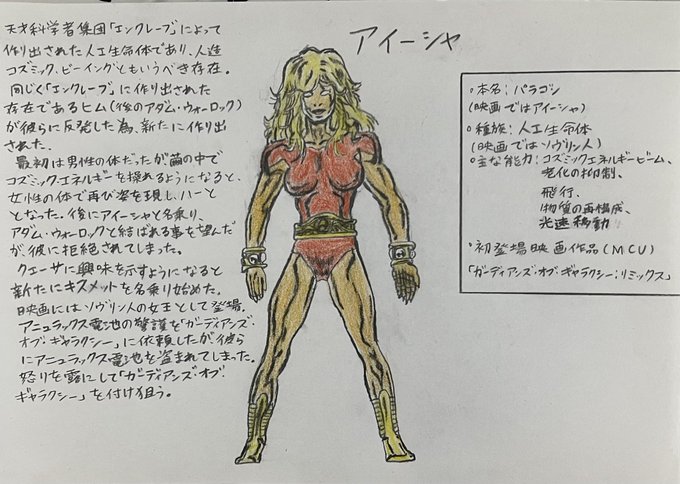 アイーシャ
天才科学者集団「エンクレーブ」によって
作り出された人工生命体であり、人造
コズミック・ビーイングともいうべき存在。
同じく「エンクレーブ」に作り出された
存在であるヒム(後のアダム・ウォーロック)
が彼らに反発した為、新たに作り出
された。
最初は男性の体だったが繭の中で
コズミック・エネルギーを操れるようになると、
女性の体で再び姿を現し、ハーと
となった。後にアイーシャと名乗り、
アダム・ウォーロックと結ばれる事を望んだ
が、彼に拒絶されてしまった。
クェーサーに興味を示すようになると
新たにキスメットを名乗り始めた。
映画にはソヴリン人の女王として登場。
アニュラックス電池の警護を「ガーディアンズ・
オブ・ギャラクシー」に依頼したが、彼ら
にアニュラックス電池を盗まれてしまった。
怒りを露にして「ガーディアンズ・オブ・
ギャラクシー」を付け狙う。
・本名:パラゴン
(映画ではアイーシャ)
・種族:人工生命体
(映画ではソヴリン人)
・主な能力:コズミックエネルギービーム、
老化の抑制、
飛行、
物質の再構成、
光速移動
・初登場映画作品(MCU)
「ガーディアンズ・オブ・ギャラクシー:リミックス」